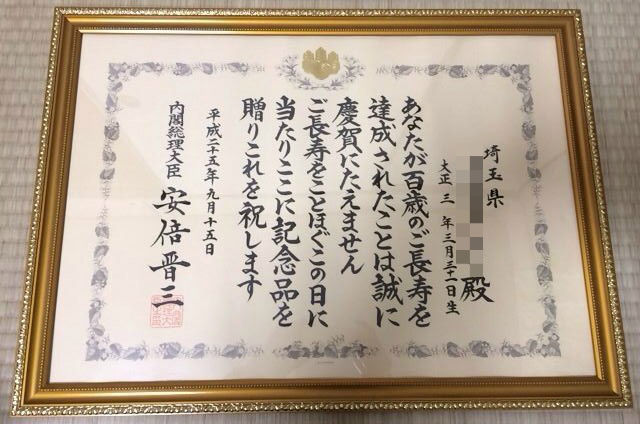 埼玉県
殿
大正三年三月三十一日生
あなたが百歳のご長寿を
達成されたことは誠に
慶賀にたえません
ご長寿をことほぐこの日に
当たりここに記念品を
贈りこれを祝します
平成二十五年九月十五日
内閣総理大臣 安倍晋三